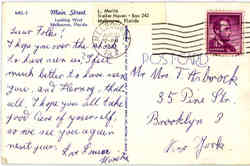 Main Street
Looking West
Melbourne, Florida
L. Morris
Trailer Haven - Box 242
Melbourne, Florida
Dear Folks!
I hope you over the shock
to have seen us. I feel
much better to have seen
you, and Harvey, that's
all, I hope you all take
good care of yourself,
so we see you again
next year.
Love Louise
POSTCARD
Mr Mrs T. Habrock
35 Pine Str.
Brooklyn 8
New York